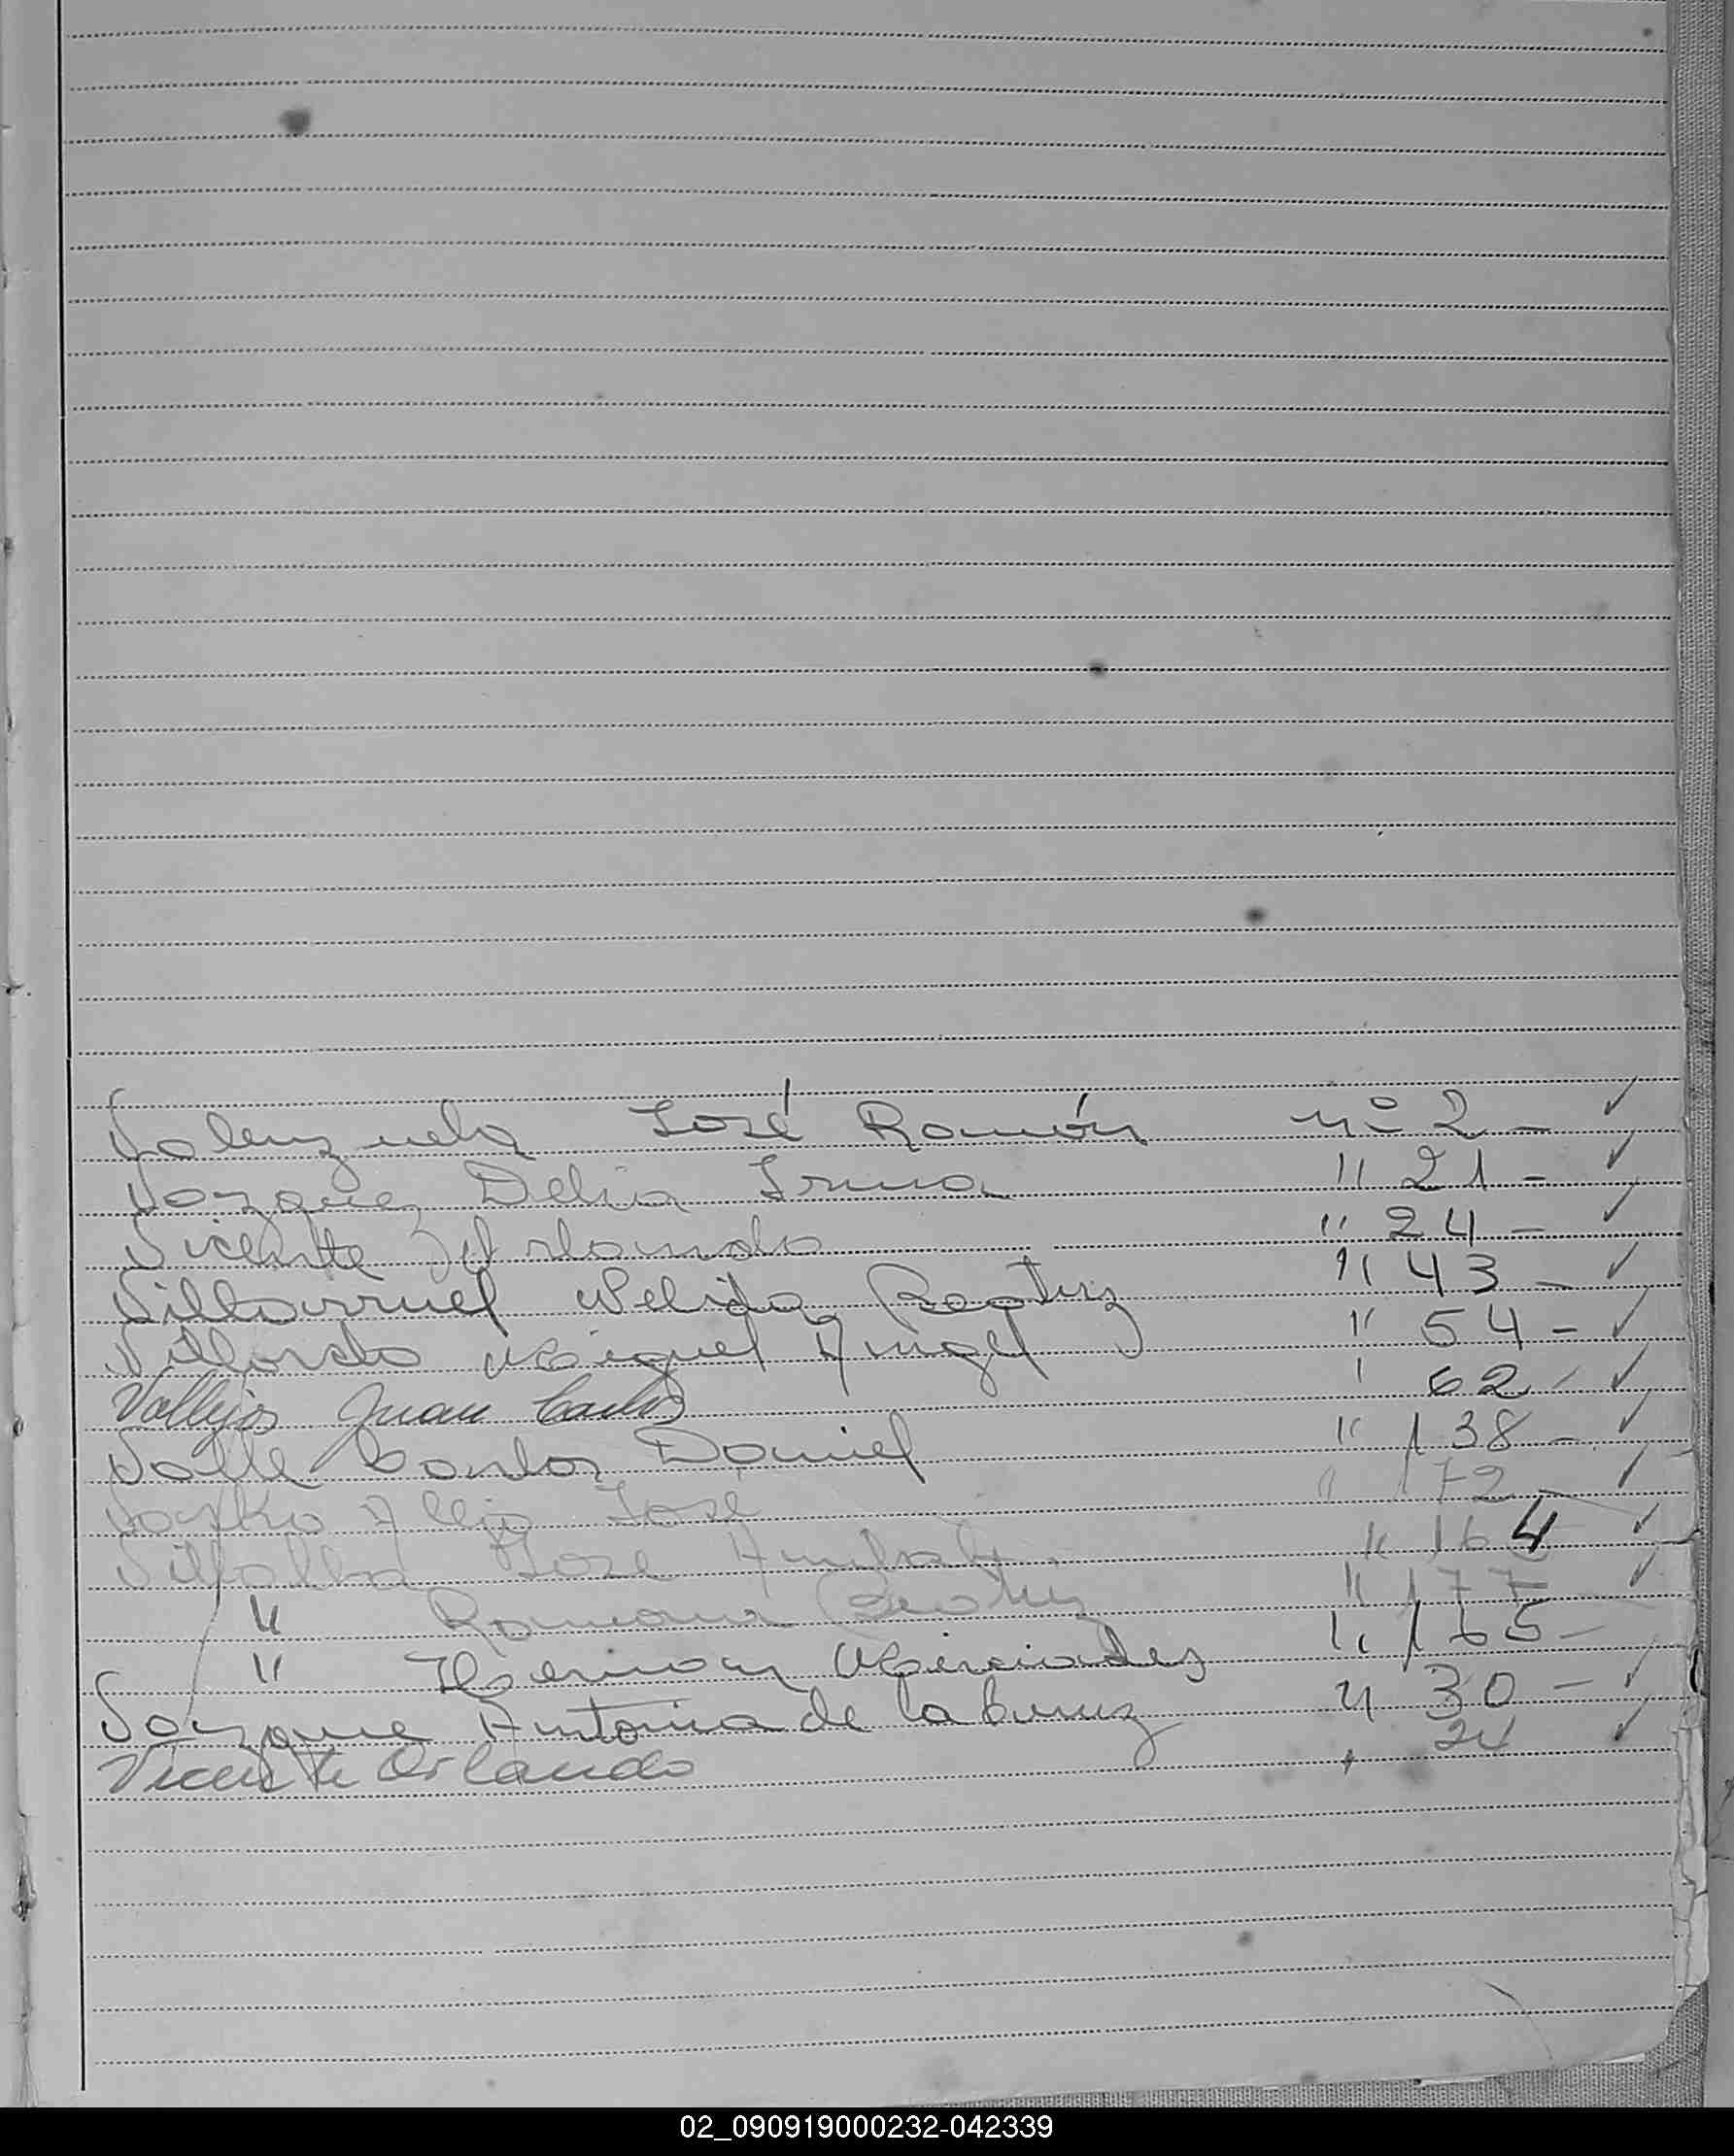 Valenzuela José Ramón nº 2 -
Vazquez Delia Irma " 21 -
Vicente Orlando " 24 -
Villarruel Nelida Beatriz " 43 -
Villordo Miguel Angel " 54 -
Vallejos Juan Carlos " 62 -
Valle Carlos Daniel " 138 -
José " 172 -
Villalba José " 164
" Ramona Beatriz " 177 -
" Hernan " 165 -
Vazque Antonia de la Cruz " 30 -
Vicente Orlando " 24
02_090919000232-042339